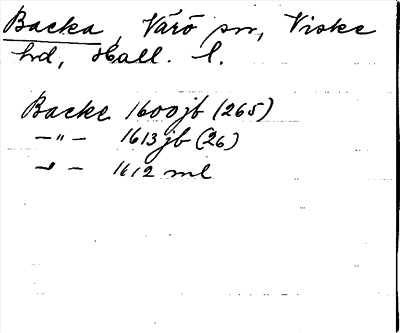 Backa, Värö sn, Viske
hd, Hall. l.
Backe 1600 jb (265)
—"— 1613 jb (26)
—"— 1612 ml